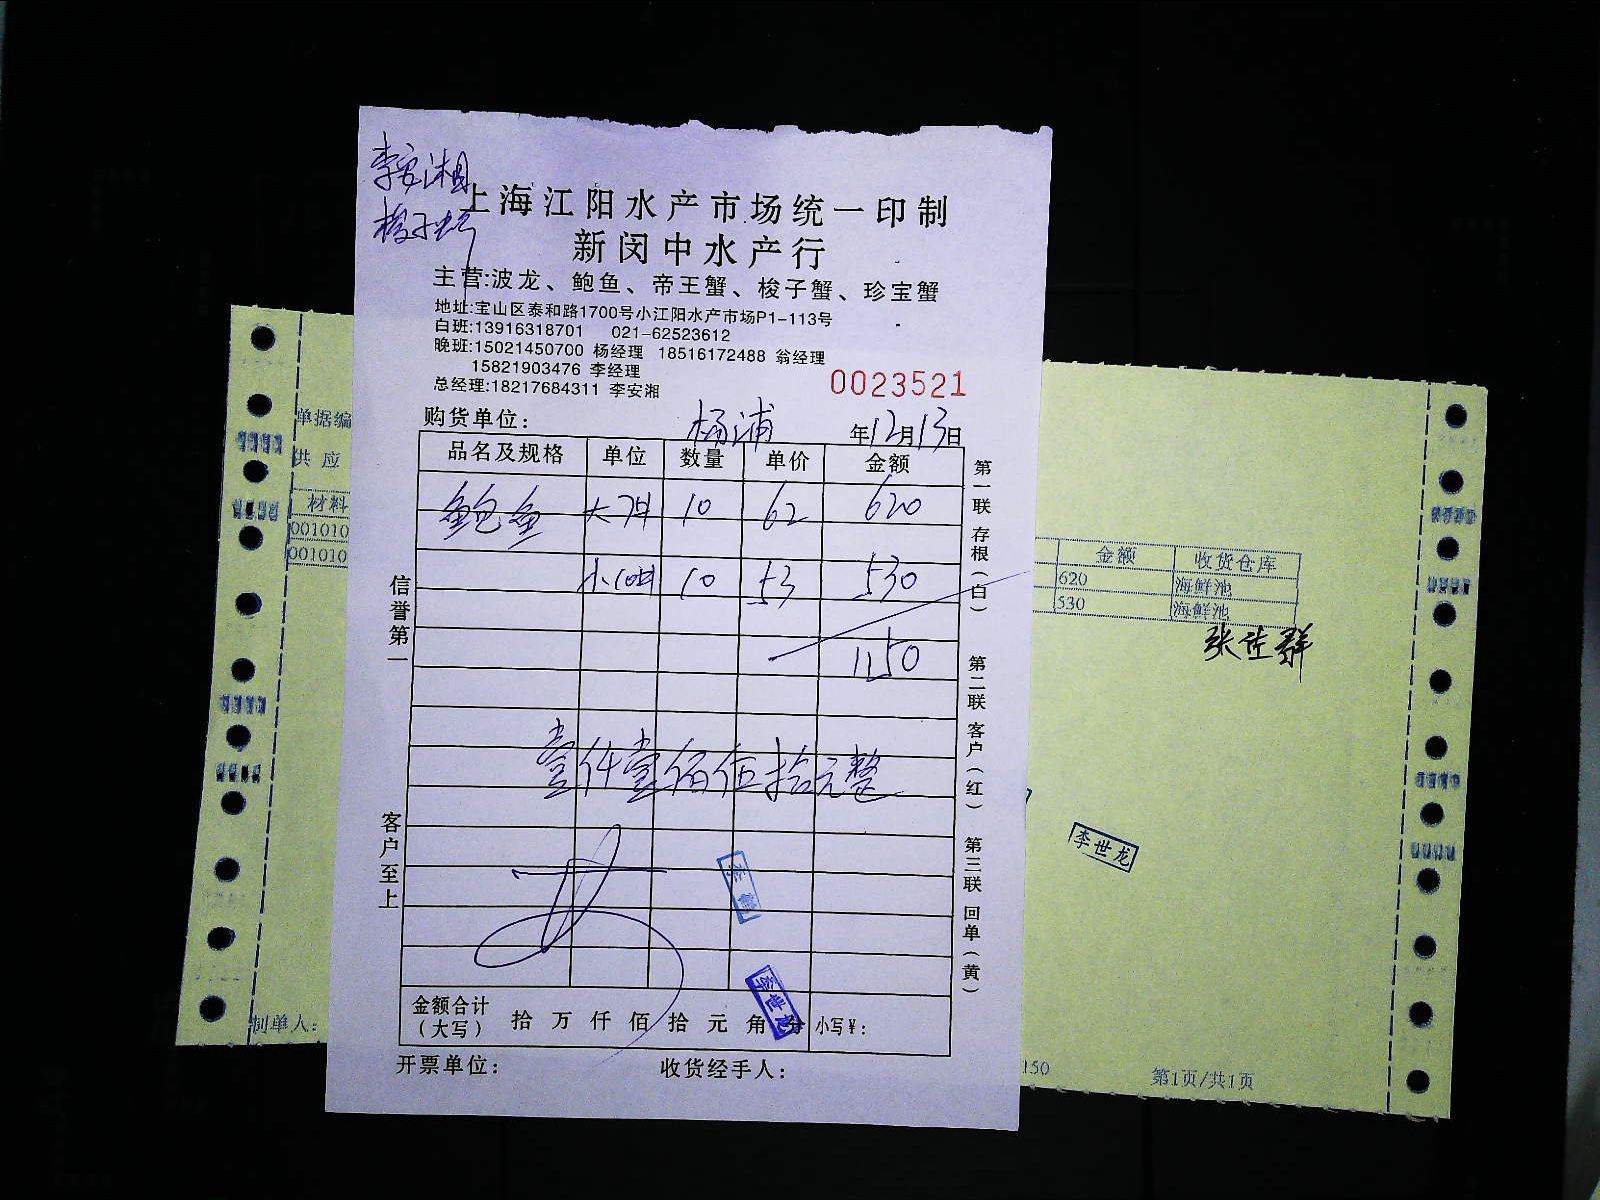 李安湘
梭子蟹
上海江阳水产市场统一印制
新闵中水产行
主营:波龙、鲍鱼、帝王蟹、梭子蟹、珍宝蟹
地址:宝山区泰和路1700号小江阳水产市场P1-113号
白班:13916318701 021-62523612
晚班:15021450700 杨经理 18516172488 翁经理
15821903476 李经理
总经理:18217684311 李安湘
0023521
购货单位: 杨浦 年12月13日
品名及规格 单位 数量 单价 金额
鲍鱼 大7# 10 62 620
小10# 10 53 530
1150
壹仟壹佰伍拾元整
金额合计(大写) 拾 万 仟 佰 拾 元 角 分 小写¥:
开票单位: 收货经手人:
信誉第一
客户至上
第一联 存根(白)
第二联 客户(红)
第三联 回单(黄)
李世龙
单据编
供 应
材料
001010
001010
制单人:
金额 收货仓库
620 海鲜池
530 海鲜池
张佐群
李世龙
150
第1页/共1页